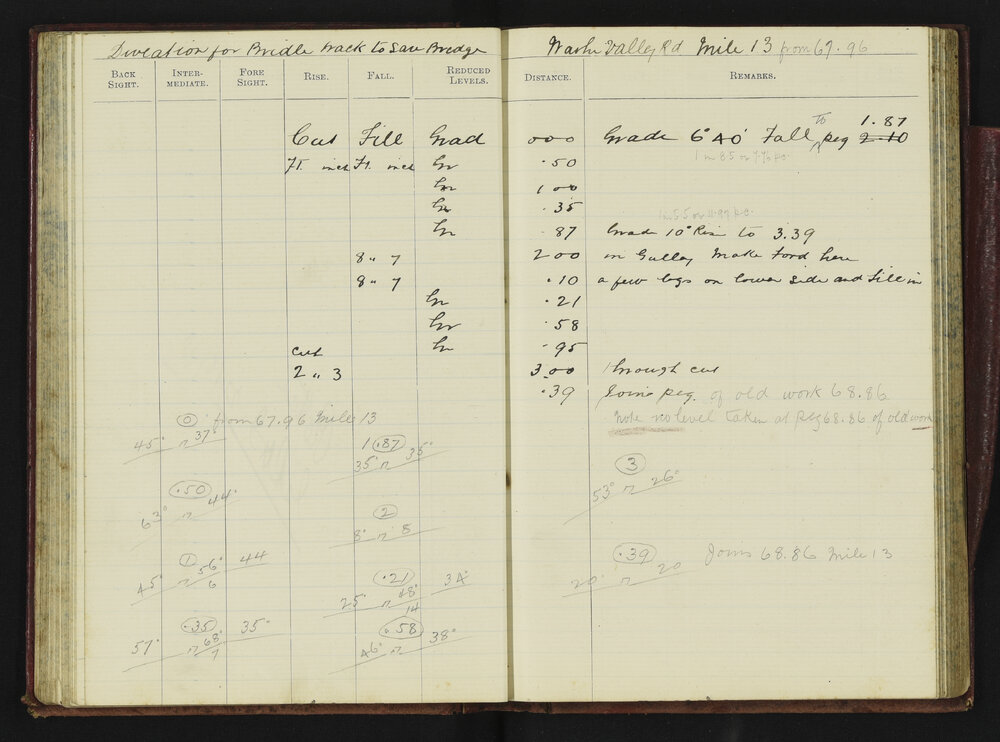 Diveation for Bridle track to Save Bredge
BACK SIGHT. INTER-MEDIATE. FORE SIGHT. RISE. FALL. REDUCED LEVELS.
Cut Fill Grad
Ft. inch Ft. inch Gr
Gr
Gr
Gr
8 " 7
8 " 7
Gr
Gr
cut Gr
2 " 3
0 from 67.96 Mile 13
45° n 37°
1 .87
35° n 35°
.50
63° n 44°
2
8° n 8
1
45° n 56° 44
6
.21
25° n 48° 34°
14
.35
57° n 68° 35°
7
.58
46° n 38°
Valley Rd Mile 13 from 67.96
DISTANCE. REMARKS.
000 Grade 6° 40' Fall To peg 2.10 1.87
.50 1 in 8.5 or
1 00
.35 1 in 5.5 or
87 Grade 10° Rise to 3.39
200 in Gulley Make Ford here
.10 a few logs on lower side and Fill in
.21
.58
.95
3.00 through cut
.39 Joins peg. of old work 68.86
Note no level taken at peg 68.86 of old work
3
53° n 26°
.39 Joins 68.86 Mile 13
20° n 20